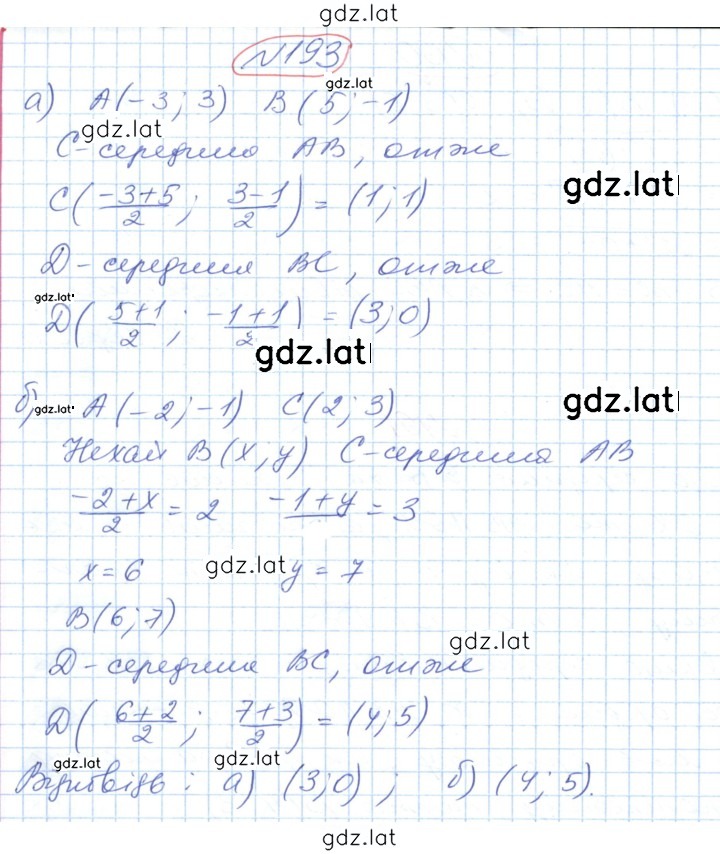 gdz.lat
№193
gdz.lat
а) A(-3; 3) B(5; -1)
gdz.lat
C-середина AB, отже
gdz.lat
C((-3+5)/2; (3-1)/2) = (1; 1)
D-середина BC, отже
gdz.lat
D((5+1)/2; (-1+1)/2) = (3; 0)
gdz.lat
gdz.lat
б) gdz.lat A(-2; -1) C(2; 3)
Нехай B(x; y) C-середина AB
(-2+x)/2 = 2 -1+y = 3
x = 6 gdz.lat y = 7
B(6; 7)
gdz.lat
D-середина BC, отже
D((6+2)/2; (7+3)/2) = (4; 5)
gdz.lat gdz.lat
Відповідь: а) (3; 0); б) (4; 5).
gdz.lat